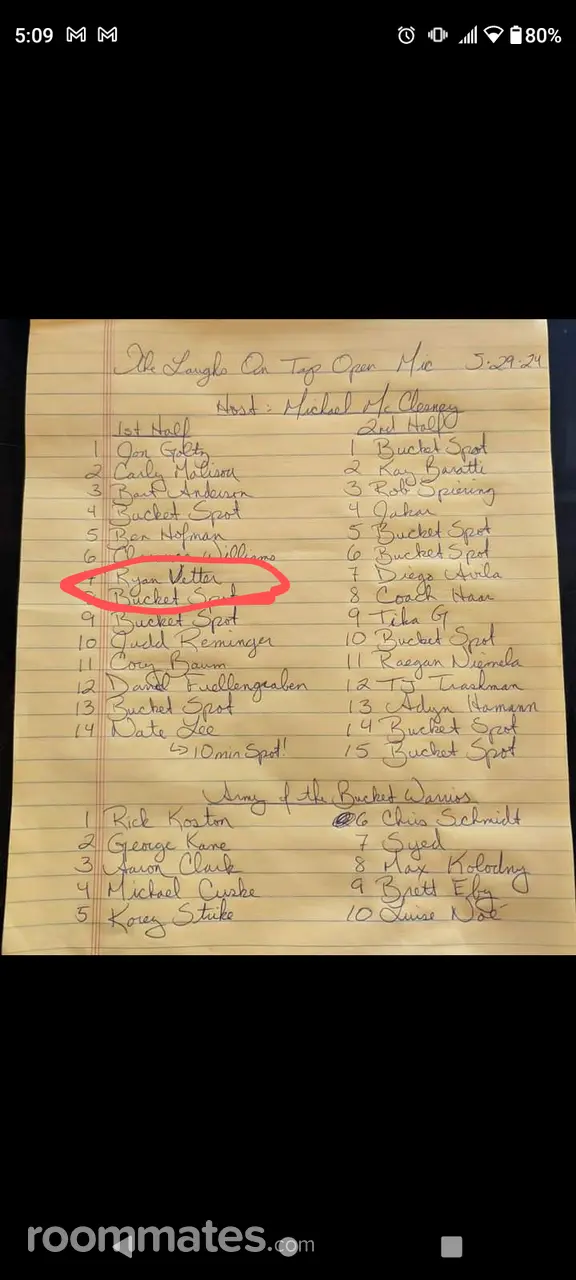 5:09 80%
The Laughs On Tap Open Mic 5·29·24
Host: Michael McClesney
1st Half
1 Jon Goltz
2 Carly Malison
3 Bart Anderson
4 Bucket Spot
5 Ben Hofman
6 Williams
7 Ryan Vetter
8 Bucket Spot
9 Bucket Spot
10 Judd Reminger
11 Cory Baum
12 David Fuellengraben
13 Bucket Spot
14 Nate Lee
↳ 10 min Spot!
2nd Half
1 Bucket Spot
2 Kay Baratti
3 Rob Spiering
4 Jakar
5 Bucket Spot
6 Bucket Spot
7 Diego Avila
8 Coach Haar
9 Tika G
10 Bucket Spot
11 Raegan Niemela
12 TJ Trashman
13 Adyn Hamann
14 Bucket Spot
15 Bucket Spot
Army of the Bucket Warrios
1 Rick Koston
2 George Kane
3 Aaron Clark
4 Michael Cuske
5 Korey Strike
6 Chris Schmidt
7 Syed
8 Max Kolodny
9 Brett Eby
10 Luise Noé
roommates.com